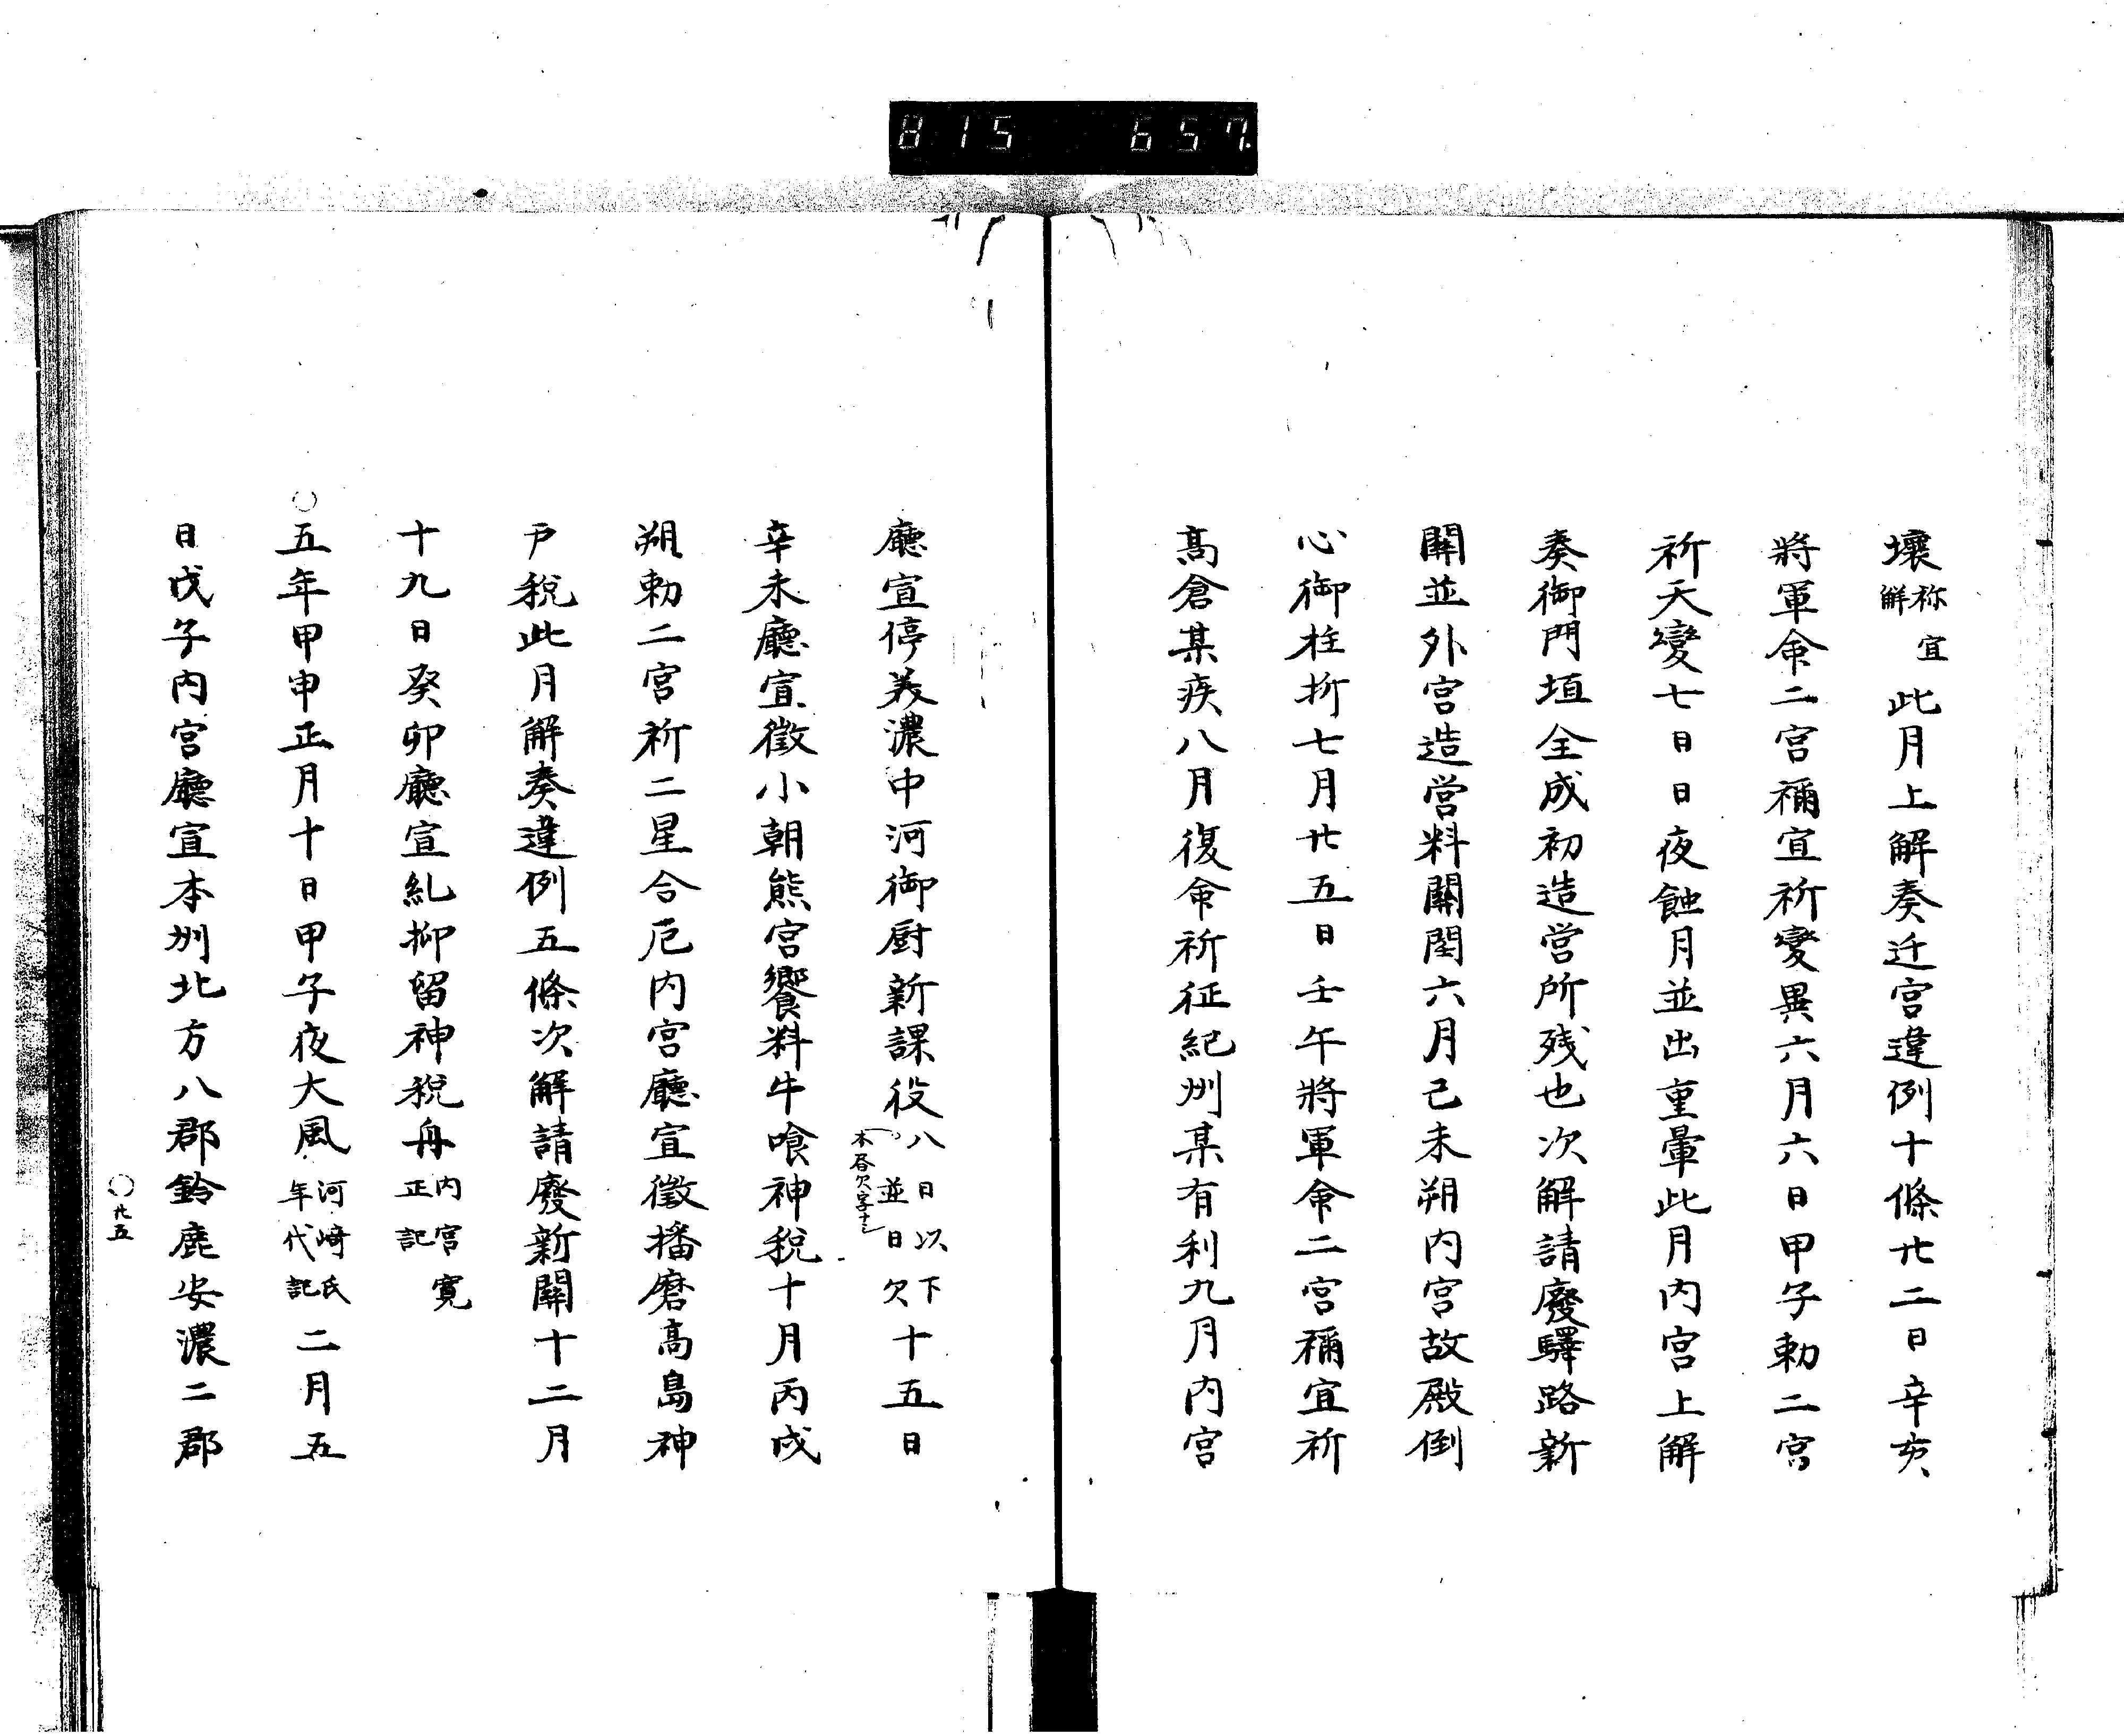 815 657
壞祢宜解此月上解奏迁宮違例十條廿二日辛亥
將軍命二宮禰宜祈變異六月六日甲子勅二宮
祈天變七日日夜蝕月並出重暈此月内宮上解
奏御門垣全成初造営所残也次解請廢驛路新
關並外宮造営料關閏六月己未朔内宮故殿倒
心御柱折七月廿五日壬午將軍命二宮禰宜祈
髙倉某疾八月復命祈征紀州某有利九月内宮
廳宣停美濃中河御厨新課役八日以下並日欠十五日
辛未廳宣徴小朝熊宮饗料牛喰神税十月丙戌
朔勅二宮祈二星合厄内宮廳宣徴播磨髙島神
戸税此月解奏違例五條次解請廢新關十二月
十九日癸卯廳宣糺抑留神税舟内宮寛正記
○五年甲申正月十日甲子夜大風河﨑氏年代記二月五
日戊子内宮廳宣本州北方八郡鈴鹿安濃二郡
○廿五